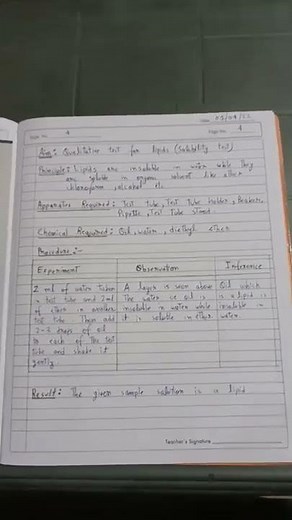 Date 05/04/22
Expt. No. 4
Page No. 4
Aim: Qualitative test for lipids (Solubility test)
Principle: Lipids are insoluble in water while they
are soluble in organic solvent like ether
chloroform, alcohol etc
Apparatus Required: Test tube, Test Tube Holder, Beakers,
Pipette, Test Tube stand.
Chemical Required: Oil, water, diethyl ether
Procedure:-
Experiment Observation Inference
2 ml of water taken A layer is seen above Oil which
in test tube and 2 ml the water i.e oil is is a lipid is
of ether in another insoluble in water while insoluble in
test tube. Then add it is soluble in ether water.
2-3 drops of oil
in each of the test
tube and shake it
gently.
Result: The given sample solution is a lipid
Teacher's Signature